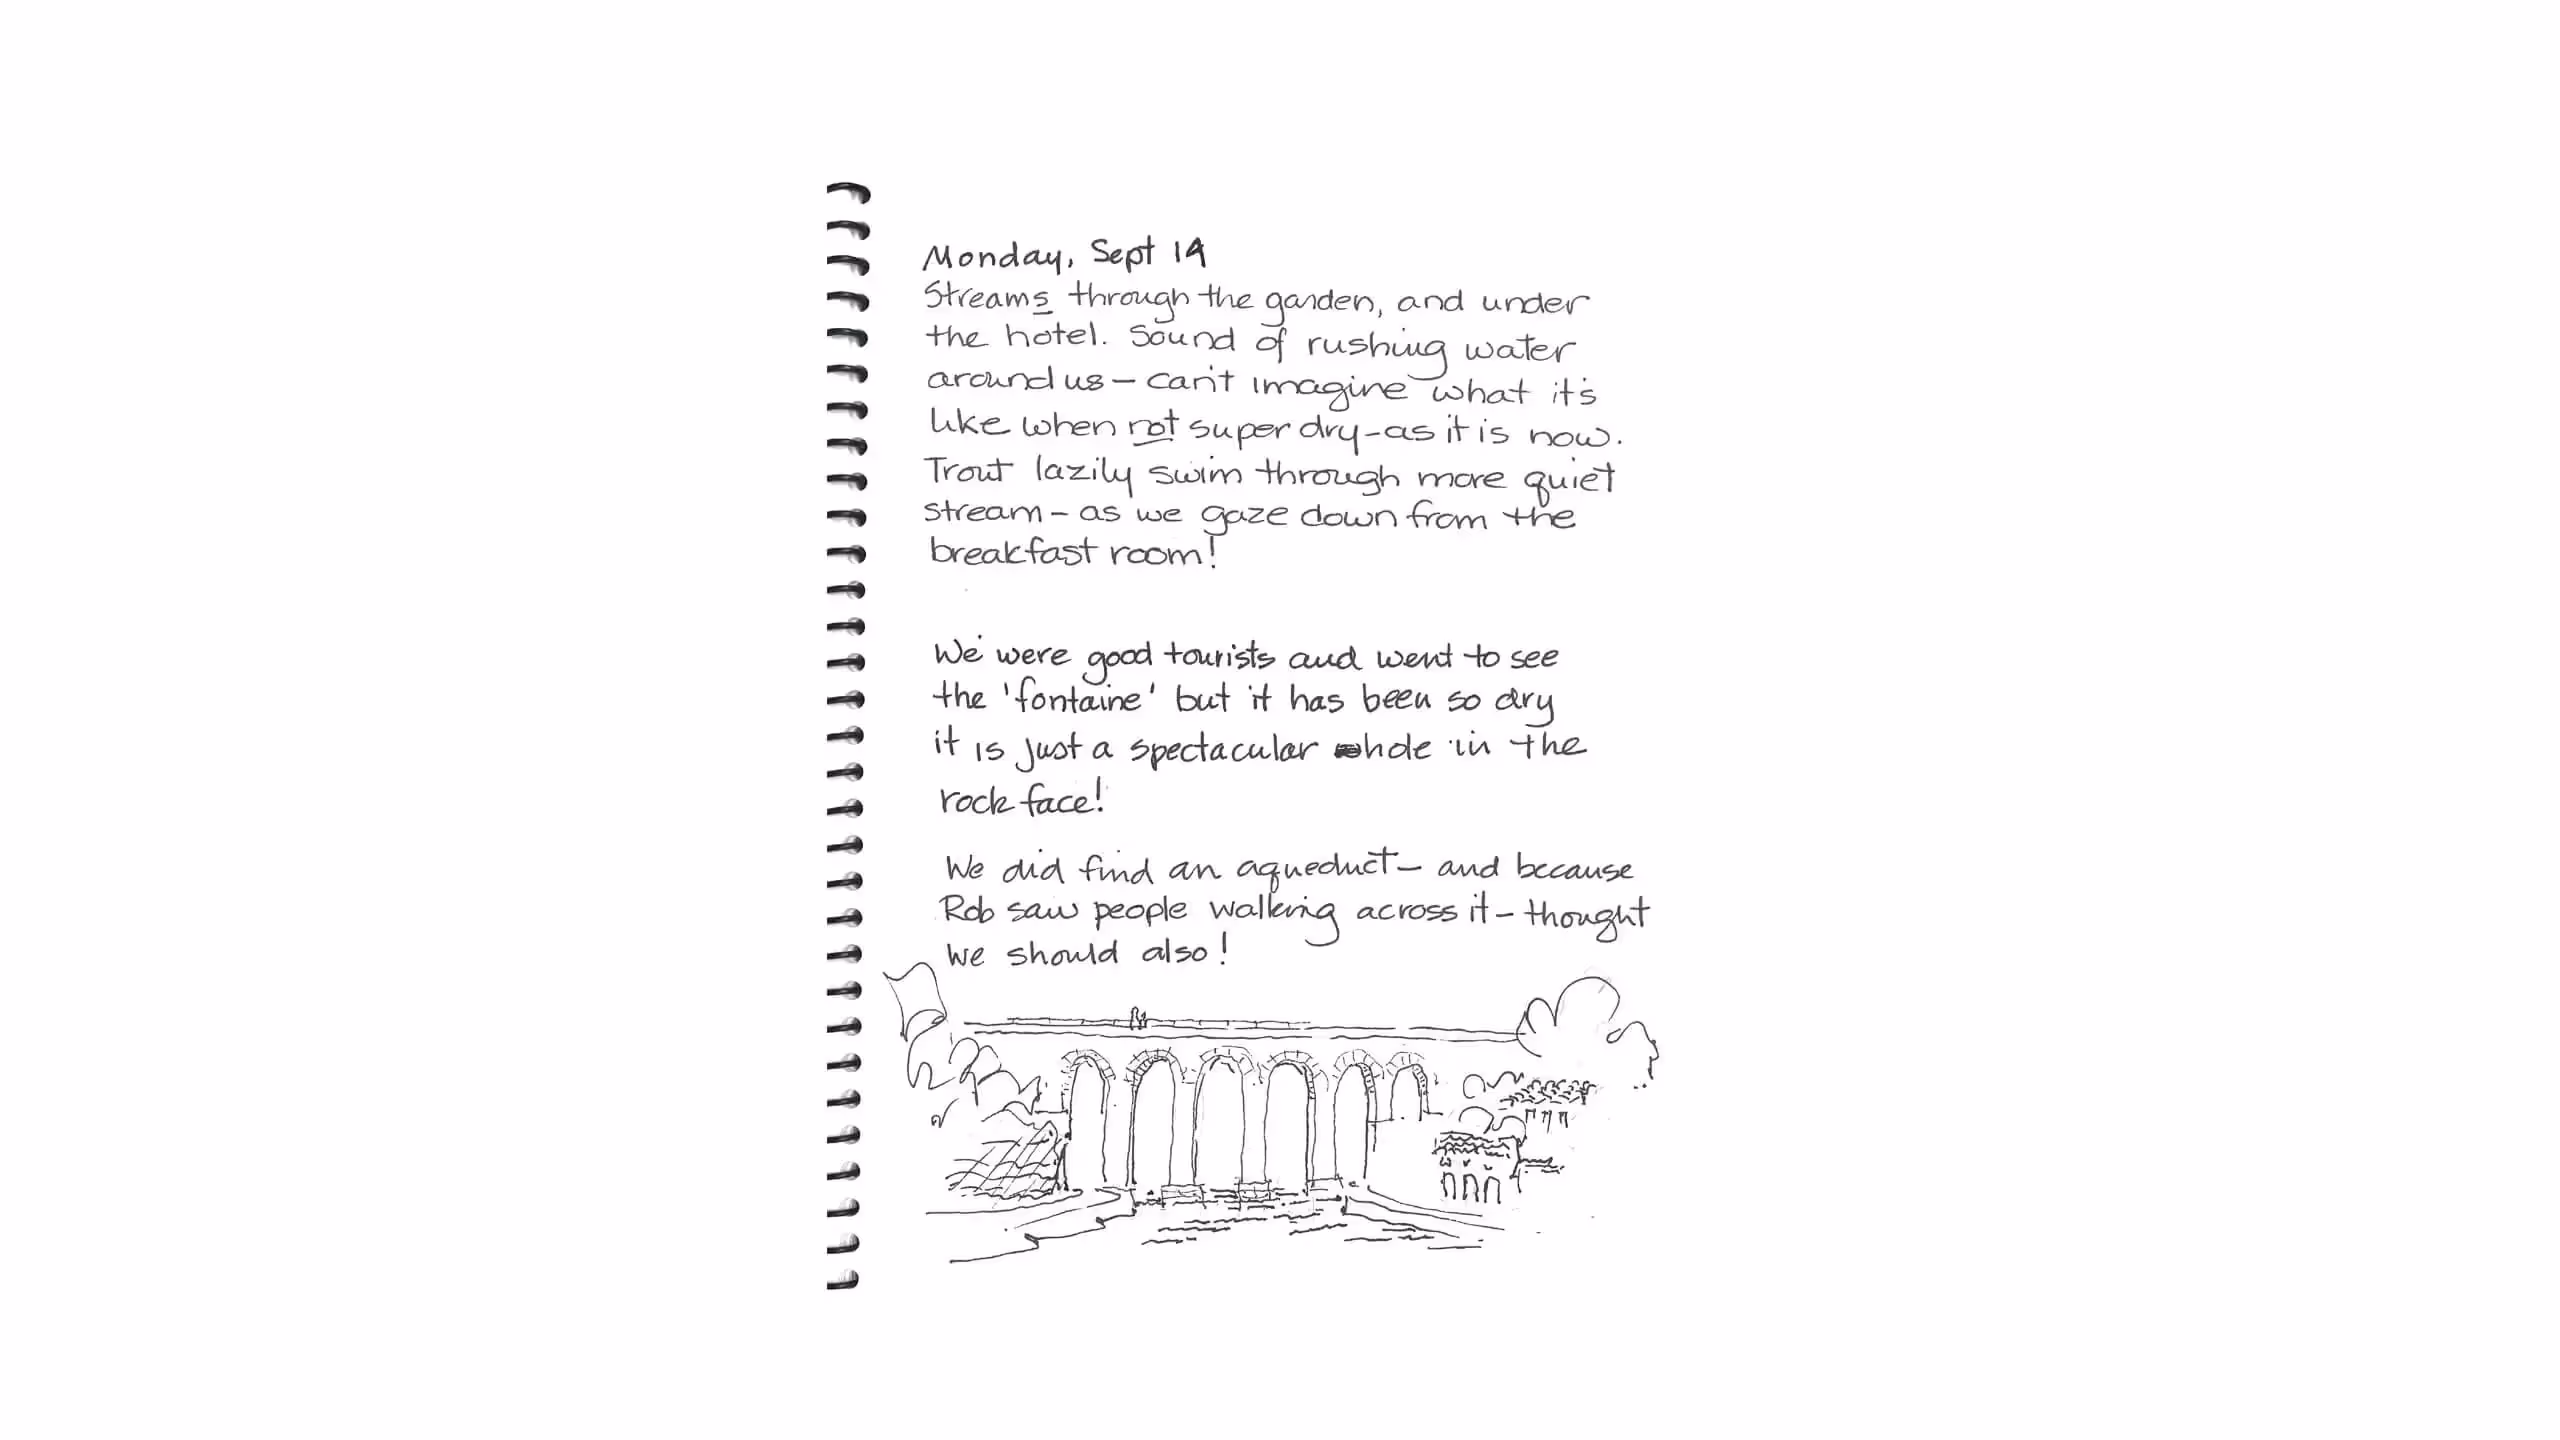 Monday, Sept 14
Streams through the garden, and under
the hotel. Sound of rushing water
around us – can't imagine what it's
like when not super dry – as it is now.
Trout lazily swim through more quiet
stream – as we gaze down from the
breakfast room!
We were good tourists and went to see
the 'fontaine' but it has been so dry
it is just a spectacular hole in the
rock face!
We did find an aqueduct – and because
Rob saw people walking across it – thought
we should also!